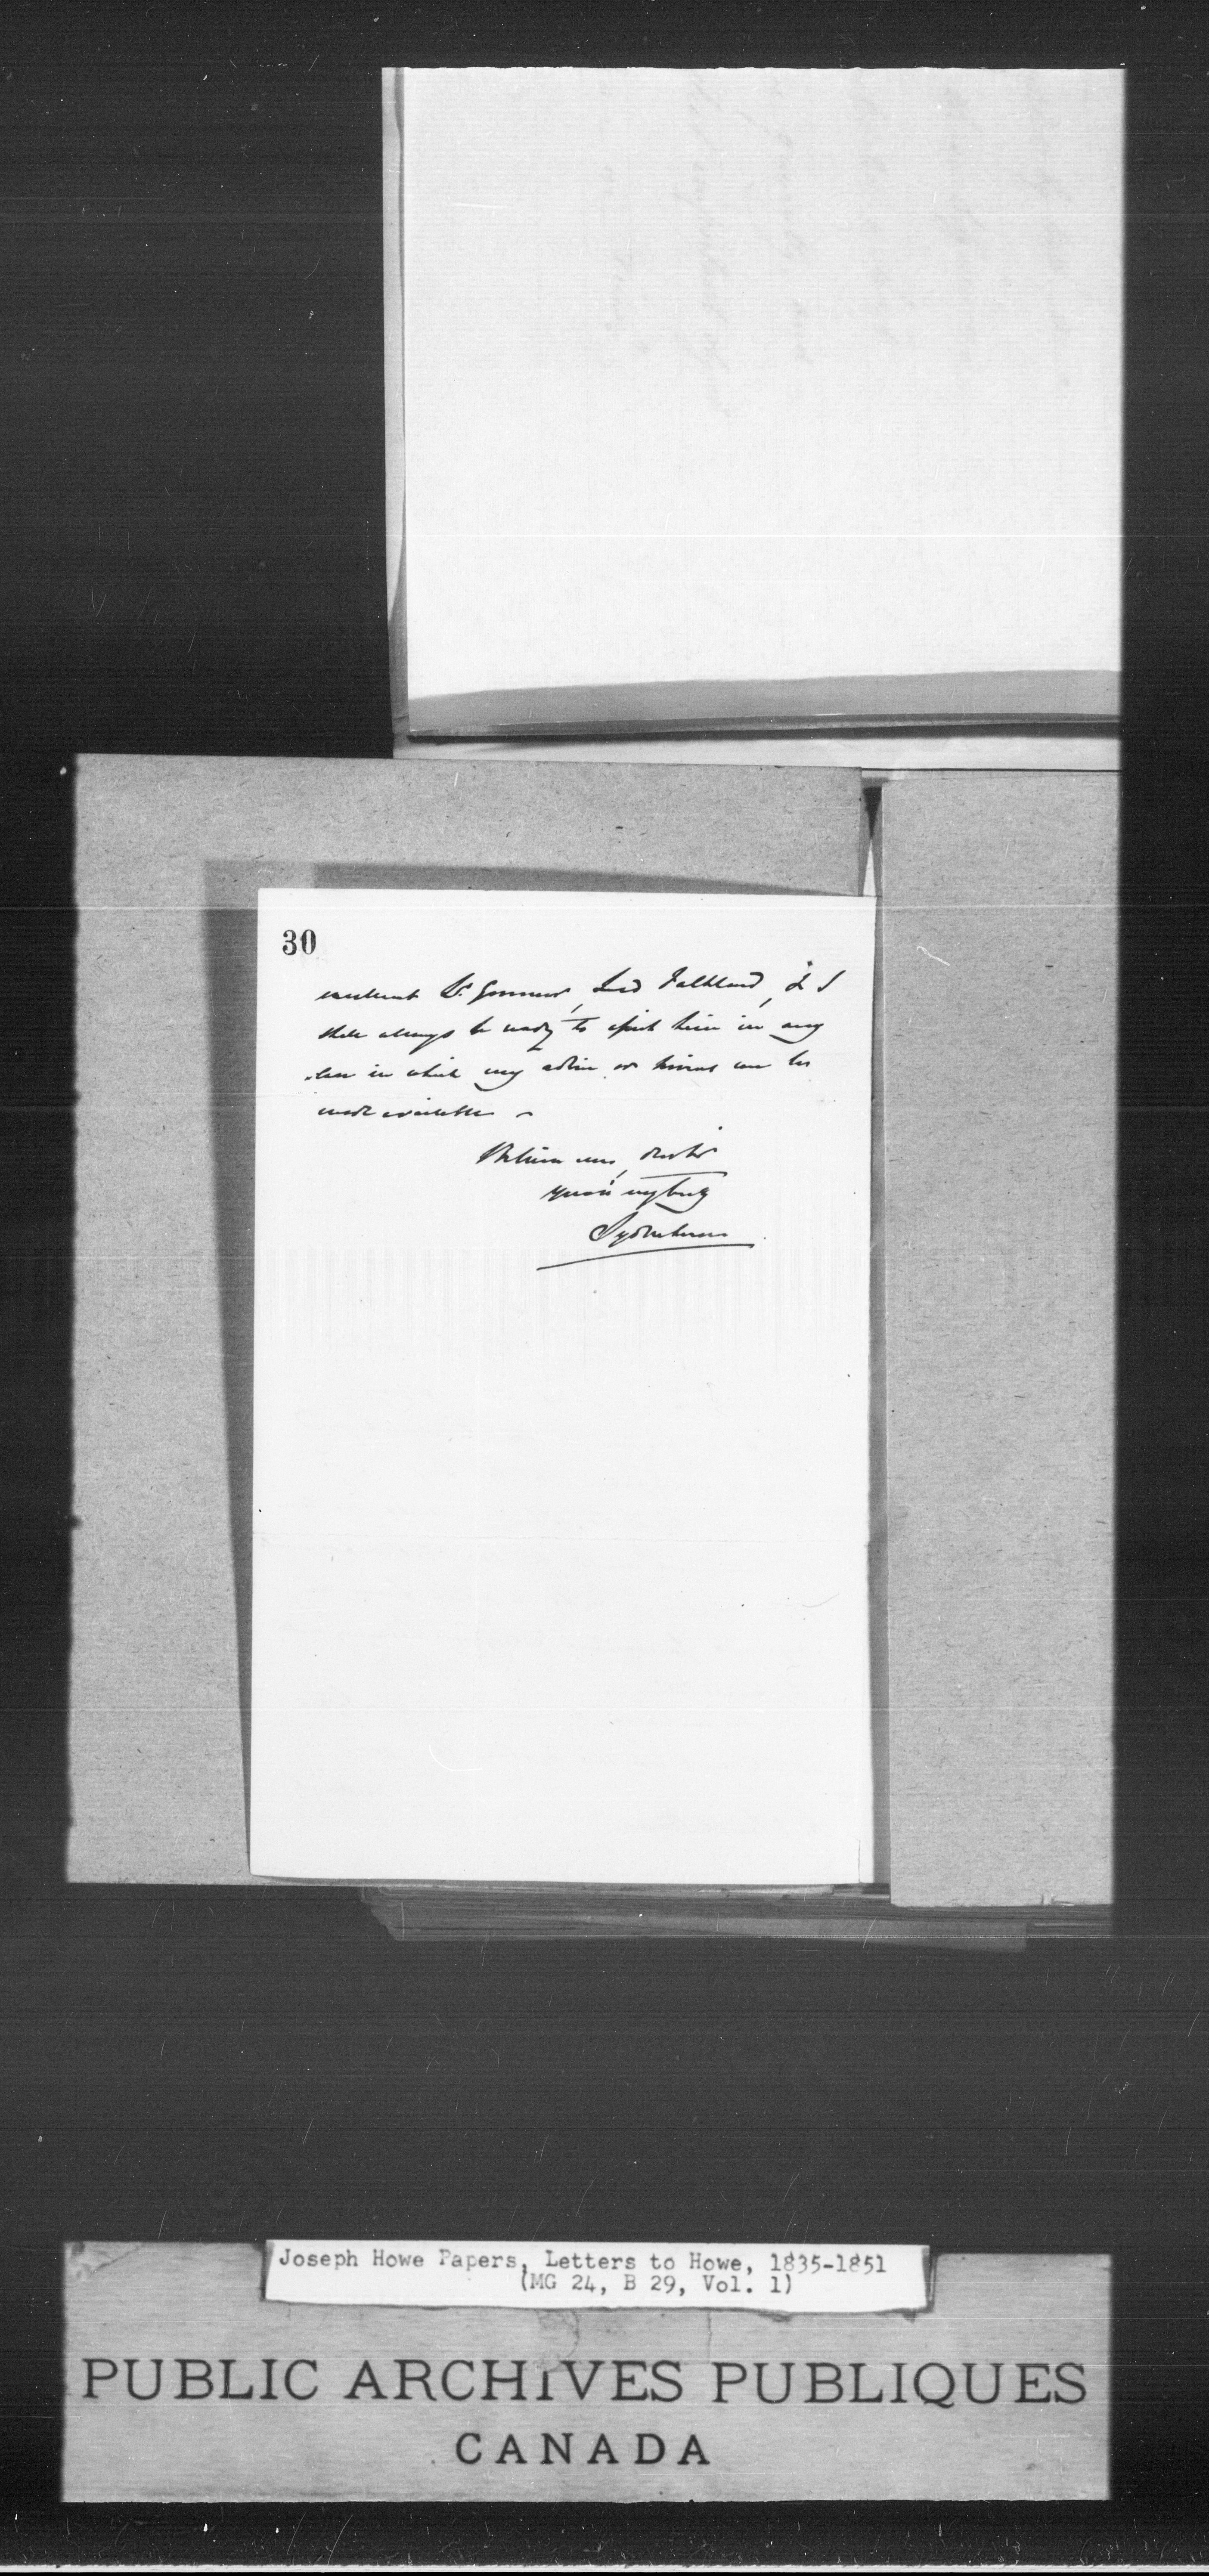 30
excellent Lt. Governor, Lord Falkland, & I
shall always be ready to assist him in any
in which my advice or services can be
made available –
Believe me, dear Sir
yours very truly
Sydenham
Joseph Howe Papers, Letters to Howe, 1835-1851
(MG 24, B 29, Vol. 1)
PUBLIC ARCHIVES PUBLIQUES
CANADA